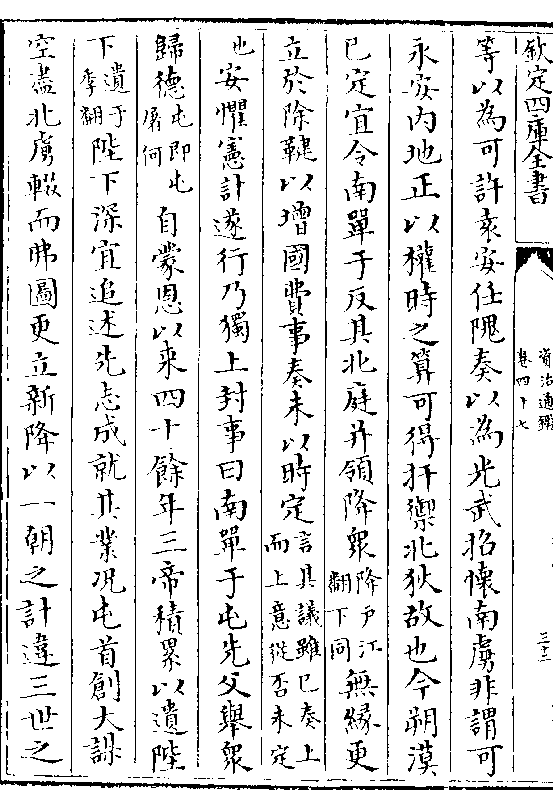 欽定四庫全書
資治通鑑
卷四十七
三十二
等以為可許袁安任隗奏以為光武招懷南虜非謂可
永安內地正以權時之算可得扞禦北狄故也今朔漠
已定宜令南單于反其北庭并領降衆降户江翻下同無緣更
立於除鞬以增國費事奏未以時定言其議雖已奏上而上意從否未定
也安懼憲計遂行乃獨上封事曰南單于屯先父舉衆
歸德屯即屯屠何自蒙恩以來四十餘年三帝積累以遺陛
下遺于季翻陛下深宜追述先志成就其業况屯首創大謀
空盡北虜輟而弗圖更立新降以一朝之計違三世之